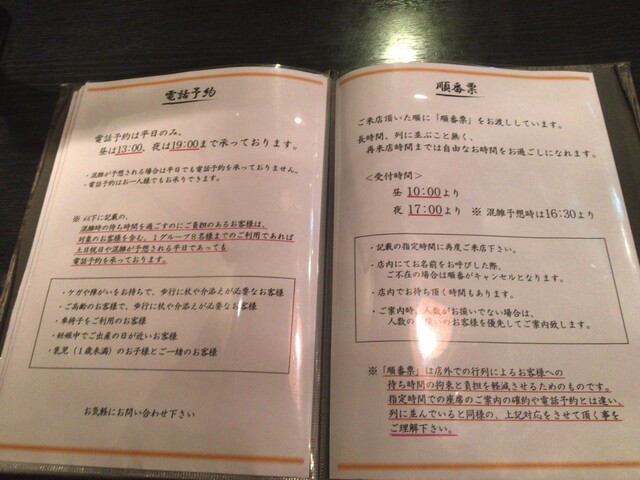 電話予約
電話予約は平日のみ、
昼は13:00、夜は19:00まで承っております。
・混雑が予想される場合は平日でも電話予約を承っておりません。
・電話予約はお一人様でもお承りできます。
※ 以下に記載の、
混雑時の待ち時間を過ごすのにご負担のあるお客様は、
対象のお客様を含む、1グループ8名様までのご利用であれば
土日祝日や混雑が予想される平日であっても
電話予約を承っております。
・ケガや障がいをお持ちで、歩行に杖や介添えが必要なお客様
・ご高齢のお客様で、歩行に杖や介添えが必要なお客様
・車椅子をご利用のお客様
・妊娠中でご出産の日が近いお客様
・乳児（1歳未満）のお子様とご一緒のお客様
お気軽にお問い合わせ下さい
順番票
ご来店頂いた順に「順番票」をお渡ししています。
長時間、列に並ぶこと無く、
再来店時間までは自由なお時間をお過ごしになれます。
＜受付時間＞
昼 10:00より
夜 17:00より ※ 混雑予想時は16:30より
・記載の指定時間に再度ご来店下さい。
・店内にてお名前をお呼びした際、
ご不在の場合は順番がキャンセルとなります。
・店内でお待ち頂く時間もあります。
・ご案内時、人数がお揃いでない場合は、
人数のお揃いのお客様を優先してご案内致します。
※「順番票」は店外での行列によるお客様への
待ち時間の拘束と負担を軽減させるためのものです。
指定時間での座席のご案内の確約や電話予約とは違い、
列に並んでいると同様の、上記対応をさせて頂く事を
ご理解下さい。